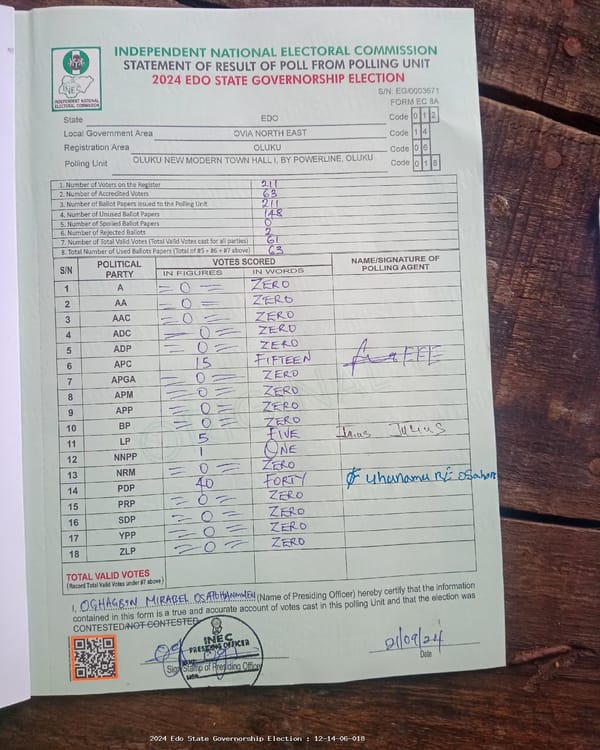 INDEPENDENT NATIONAL ELECTORAL COMMISSION
STATEMENT OF RESULT OF POLL FROM POLLING UNIT
2024 EDO STATE GOVERNORSHIP ELECTION
INEC
INDEPENDENT NATIONAL ELECTORAL COMMISSION
S/N: EG/0003671
FORM EC 8A
State EDO Code 0 1 2
Local Government Area OVIA NORTH EAST Code 1 4
Registration Area OLUKU Code 0 6
Polling Unit OLUKU NEW MODERN TOWN HALL I, BY POWERLINE, OLUKU Code 0 1 8
1. Number of Voters on the Register 211
2. Number of Accredited Voters 63
3. Number of Ballot Papers issued to the Polling Unit 211
4. Number of Unused Ballot Papers 148
5. Number of Spoiled Ballot Papers 0
6. Number of Rejected Ballots 2
7. Number of Total Valid Votes (Total Valid Votes cast for all parties) 61
8. Total Number of Used Ballots Papers (Total of #5 + #6 + #7 above) 63
S/N POLITICAL PARTY VOTES SCORED NAME/SIGNATURE OF POLLING AGENT
IN FIGURES IN WORDS
1 A = 0 = ZERO
2 AA = 0 = ZERO
3 AAC = 0 = ZERO
4 ADC = 0 = ZERO
5 ADP = 0 = ZERO
6 APC 15 FIFTEEN
7 APGA = 0 = ZERO
8 APM = 0 = ZERO
9 APP = 0 = ZERO
10 BP = 0 = ZERO
11 LP 5 FIVE JULIUS
12 NNPP 1 ONE
13 NRM = 0 = ZERO
14 PDP 40 FORTY
15 PRP = 0 = ZERO
16 SDP = 0 = ZERO
17 YPP = 0 = ZERO
18 ZLP = 0 = ZERO
TOTAL VALID VOTES
(Record Total Valid Votes under #7 above)
I, OGHAGBON MIRABEL (Name of Presiding Officer) hereby certify that the information
contained in this form is a true and accurate account of votes cast in this polling Unit and that the election was
CONTESTED/NOT CONTESTED
INEC
PRESIDING OFFICER
Sign/Stamp of Presiding Officer
21/09/24
Date
2024 Edo State Governorship Election : 12-14-06-018